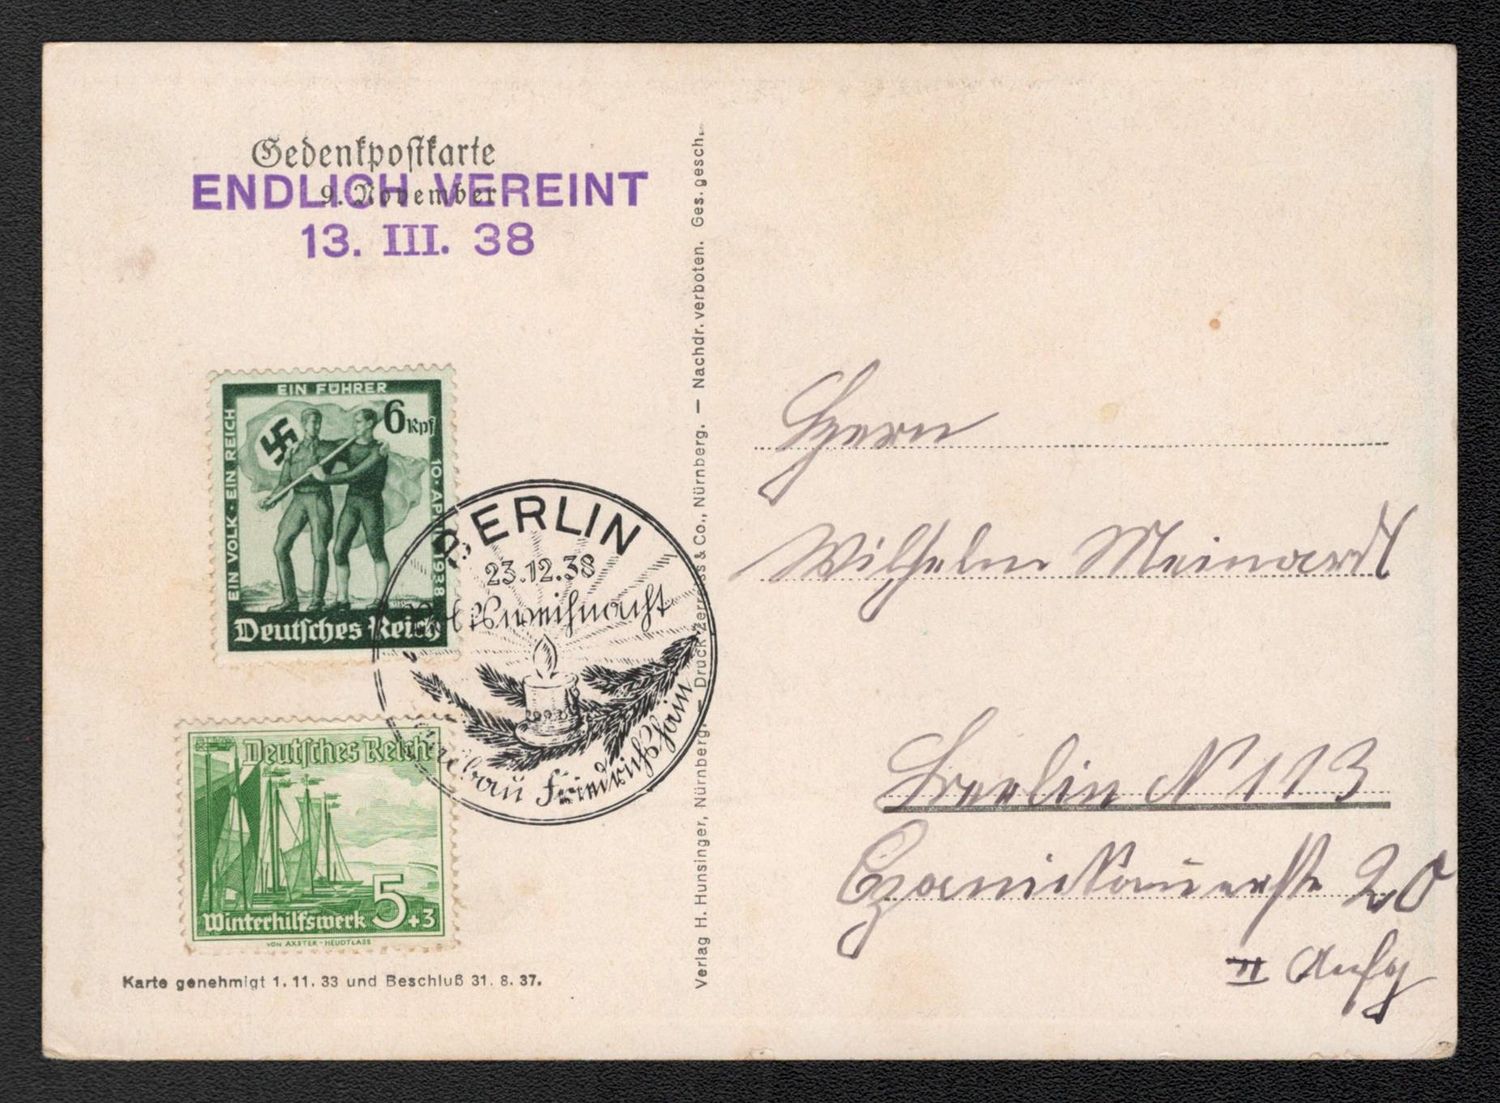 Gedenkpostkarte
9. November
ENDLICH VEREINT
13. III. 38
EIN VOLK · EIN REICH
EIN FÜHRER
10 · APRIL 1938
6 Rpf
Deutsches Reich
BERLIN
23.12.38
Volksweihnacht
Friedrichshain
Deutsches Reich
Winterhilfswerk 5+3
VON AXSTER-HEUDTLASS
Karte genehmigt 1. 11. 33 und Beschluß 31. 8. 37.
Verlag H. Hunsinger, Nürnberg. — Druck Zerreiss & Co., Nürnberg. — Nachdr. verboten. Ges. gesch.
Herrn
Wilhelm Meinardt
Berlin N 113
Czarnikauerstr 20
II Aufg